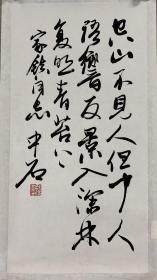 空山不見人但聞人
語響反景入深林
复照青苔上
家同志 中石